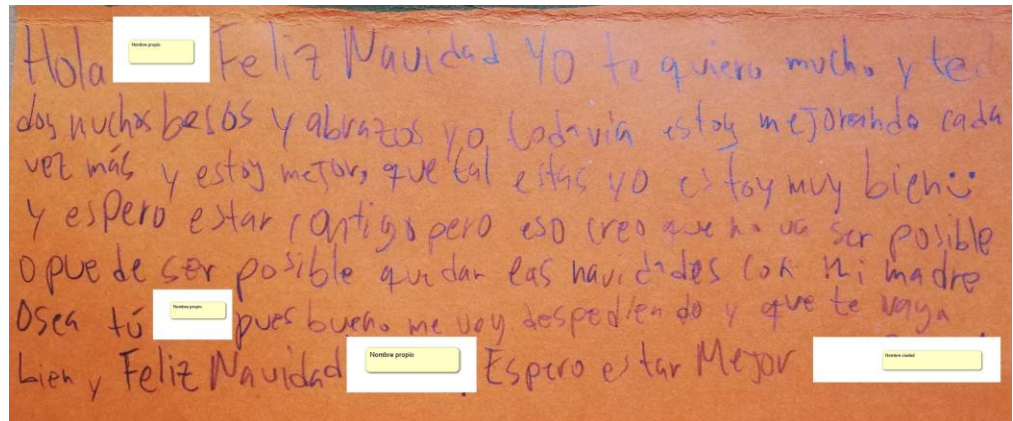 Hola Nombre propio Feliz Navidad Yo te quiero mucho y te
doy muchos besos y abrazos yo todavía estoy mejorando cada
vez más y estoy mejor, que tal estas yo estoy muy bien
y espero estar contigo pero eso creo que no va ser posible
o puede ser posible quedar las navidades con mi madre
Osea tú Nombre propio pues bueno me voy despediendo y que te vaya
bien y Feliz Navidad Nombre propio Espero estar Mejor Nombre ciudad